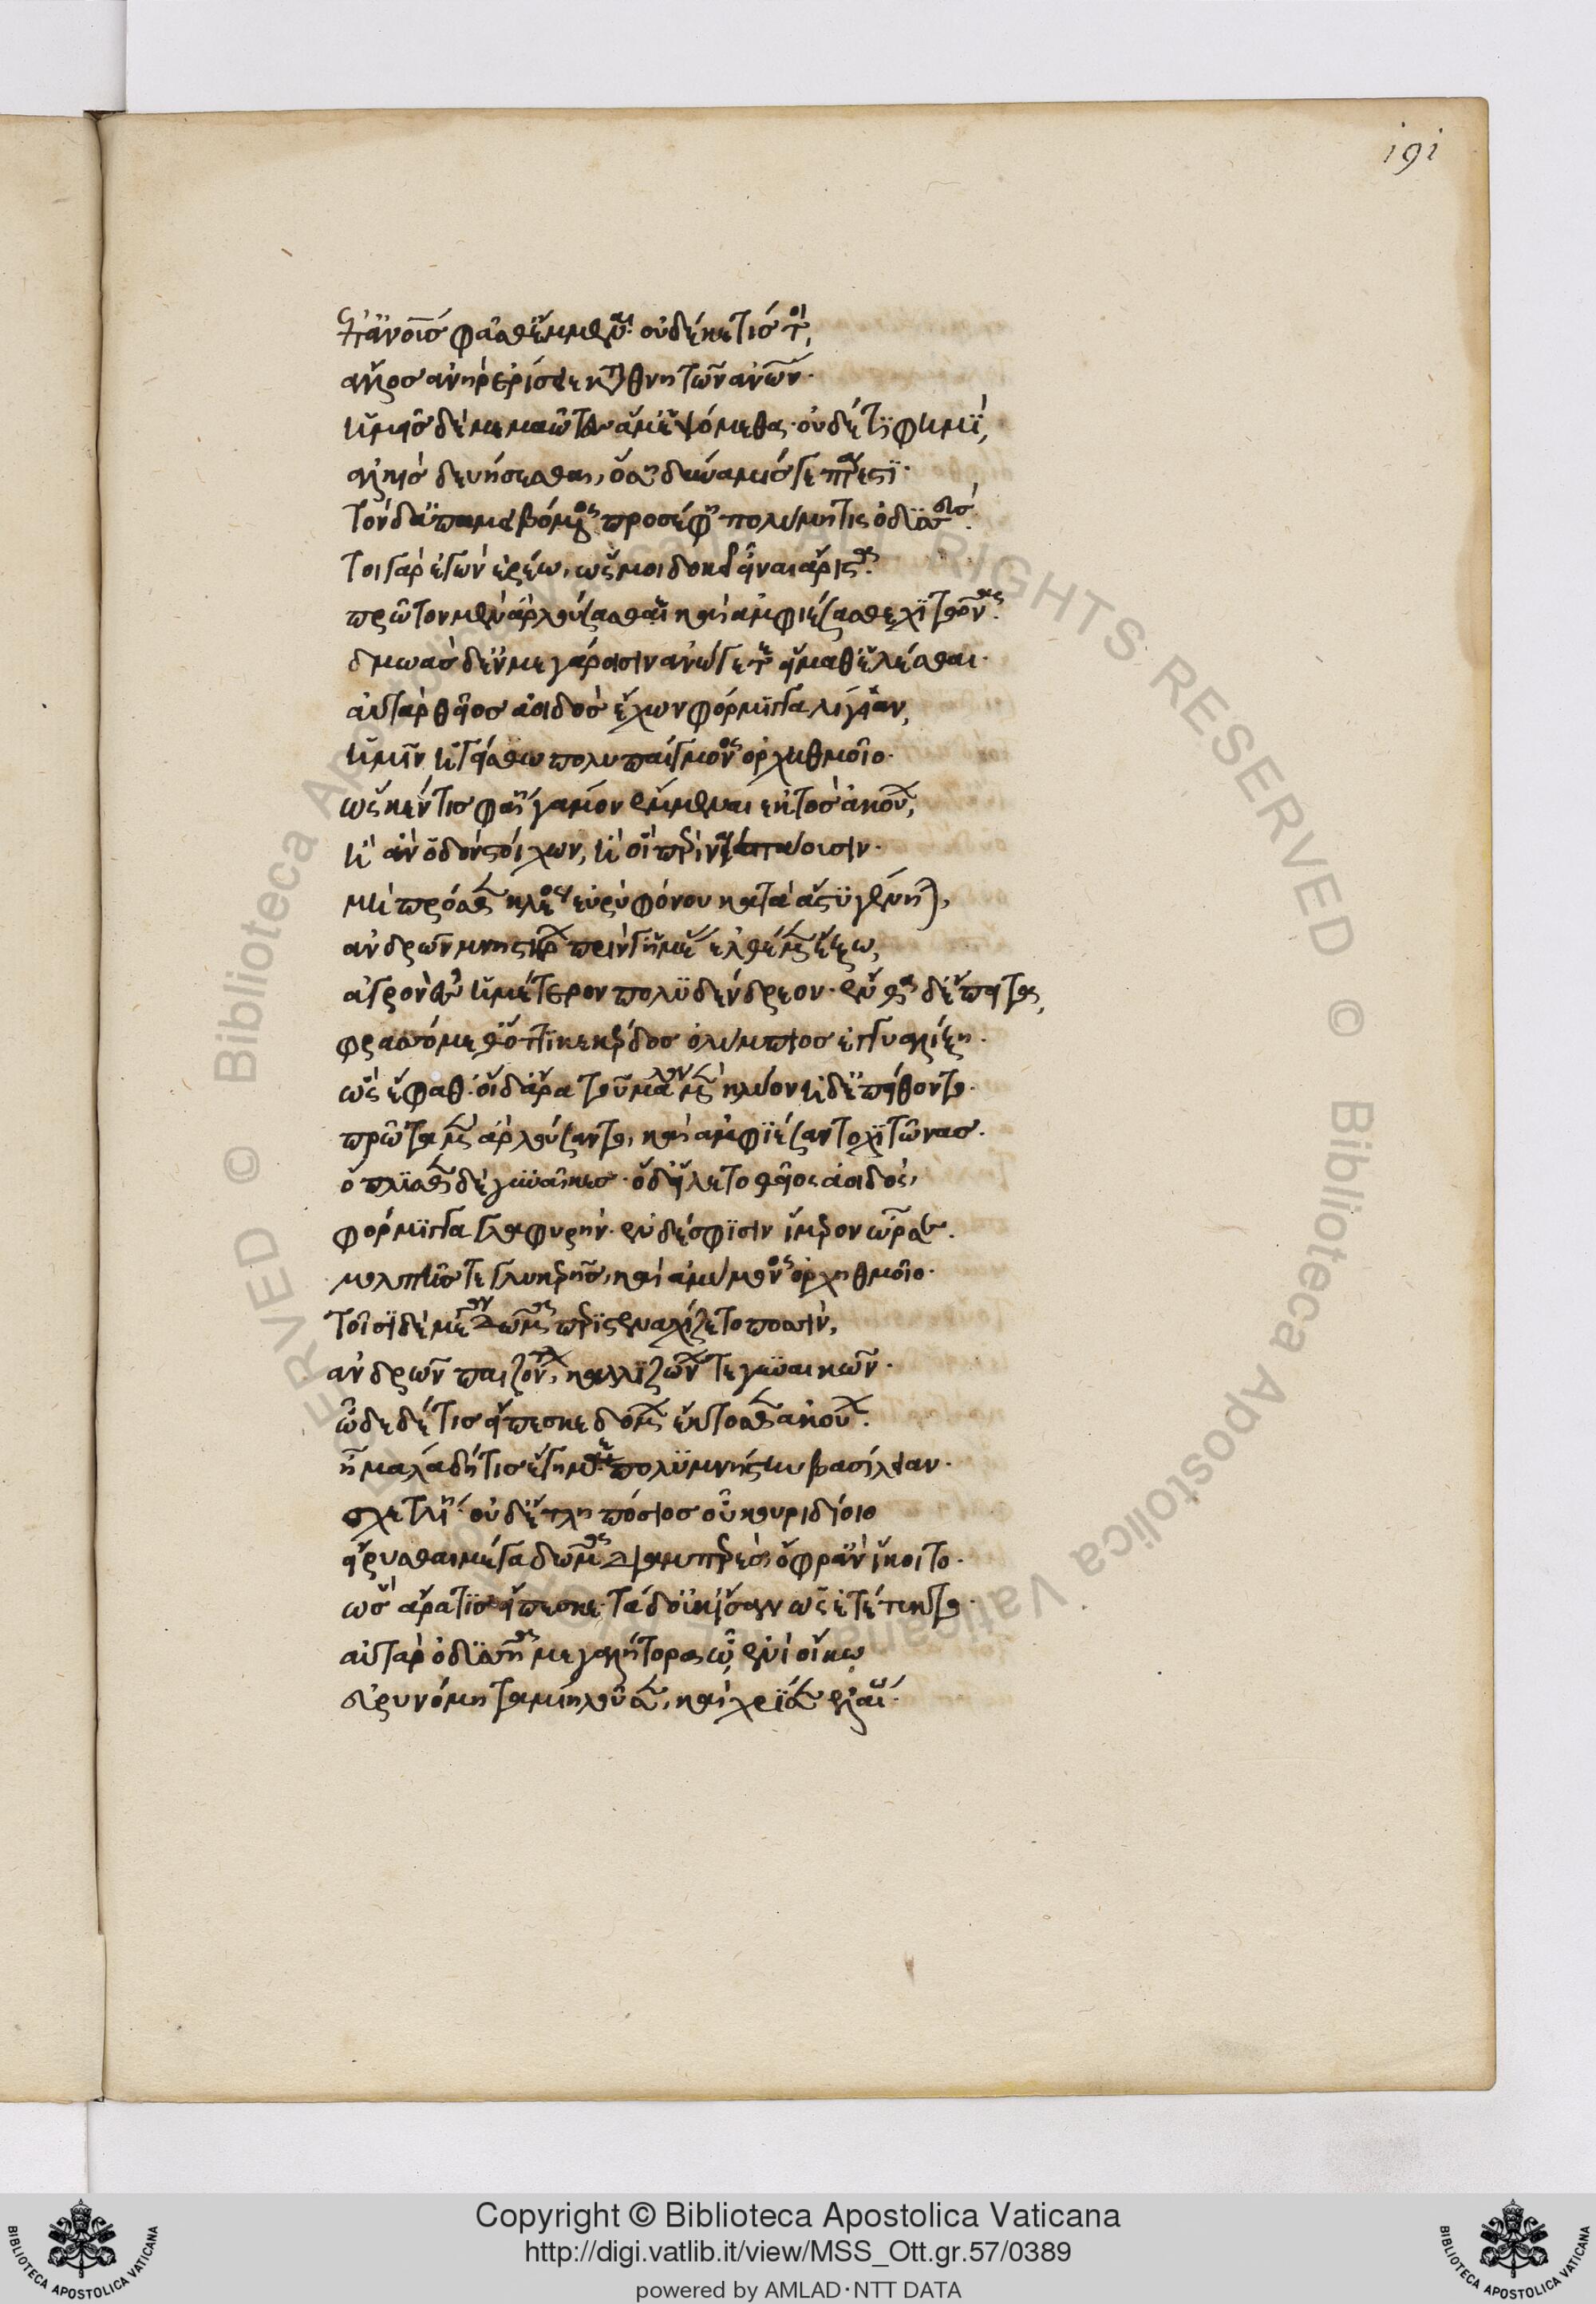 191
ἐπ' ἀνους φάσθ' ἔμμεναι· οὐδέ κε τίς τοι,
ἄλλος ἀνὴρ ἐρίσειε καταθνητῶν ἀνων·
ἡμεῖς δὲ μεμαῶτες ἅμ' ἑψόμεθα· οὐδέ τί φημι,
ἀλκῆς δευήσεσθαι, ὅση δύναμίς γε πάρεστι·
τὸν δ' ἀπαμειβόμενος προσέφη πολύμητις ὀδυσσεύς·
τοιγὰρ ἐγὼν ἐρέω, ὥς μοι δοκεῖ εἶναι ἄριστα·
πρῶτον μὲν ἂρ λούσασθαι καὶ ἀμφιέσασθε χιτῶνας·
δμωὰς δ' ἐν μεγάροισιν ἀνώγετε εἵμαθ' ἑλέσθαι·
αὐτὰρ θεῖος ἀοιδὸς ἔχων φόρμιγγα λίγειαν,
ἡμῖν ἡγείσθω πολυπαίγμονος ὀρχηθμοῖο·
ὥς κέν τις φαίη γάμον ἔμμεναι ἐκτὸς ἀκούων,
ἢ ἀν' ὁδὸν στείχων, ἢ οἳ περιναιετάουσιν·
μὴ πρόσθεν κλέος εὐρὺ φόνου κατὰ ἄστυ γένηται,
ἀνδρῶν μνηστήρων πρίν γ' ἡμέας ἐλθέμεν ἔξω,
ἀγρὸν ἐς ἡμέτερον πολυδένδρεον· ἔνθα δ' ἔπειτα,
φρασσόμεθ' ὅττι κε κέρδος ὀλύμπιος ἐγγυαλίξη·
ὣς ἔφαθ'· οἱ δ' ἄρα τοῦ μάλα μὲν κλύον ἠδ' ἐπίθοντο·
πρῶτα μὲν ἂρ λούσαντο, καὶ ἀμφιέσαντο χιτῶνας·
ὅπλισθεν δὲ γυναῖκες· ὁ δ' εἵλετο θεῖος ἀοιδός,
φόρμιγγα γλαφυρήν· ἐν δέ σφισιν ἵμερον ὦρσεν·
μολπῆς τε γλυκερῆς, καὶ ἀμύμονος ὀρχηθμοῖο·
τοῖσι δὲ μέγα δῶμα περιστεναχίζετο ποσσίν,
ἀνδρῶν παιζόντων, καλλιζώνων τε γυναικῶν·
ὧδε δέ τις εἴπεσκε δόμων ἔκτοσθεν ἀκούων·
ἦ μάλα δή τις ἔγημε πολυμνήστην βασίλειαν·
σχετλίη οὐδ' ἔτλη πόσιος οὗ κουριδίοιο
εἴρυσθαι μέγα δῶμα διαμπερὲς ὄφρ' ἂν ἵκοιτο·
ὣς ἄρα τις εἴπεσκε· τὰ δ' οὐκ ἴσαν ὡς ἐτέτυκτο·
αὐτὰρ ὀδυσσῆα μεγαλήτορα ᾧ ἐνὶ οἴκω
εὐρυνόμη ταμίη λοῦσεν, καὶ χρῖσεν ἐλαίω·
Copyright © Biblioteca Apostolica Vaticana
http://digi.vatlib.it/view/MSS_Ott.gr.57/0389
powered by AMLAD·NTT DATA